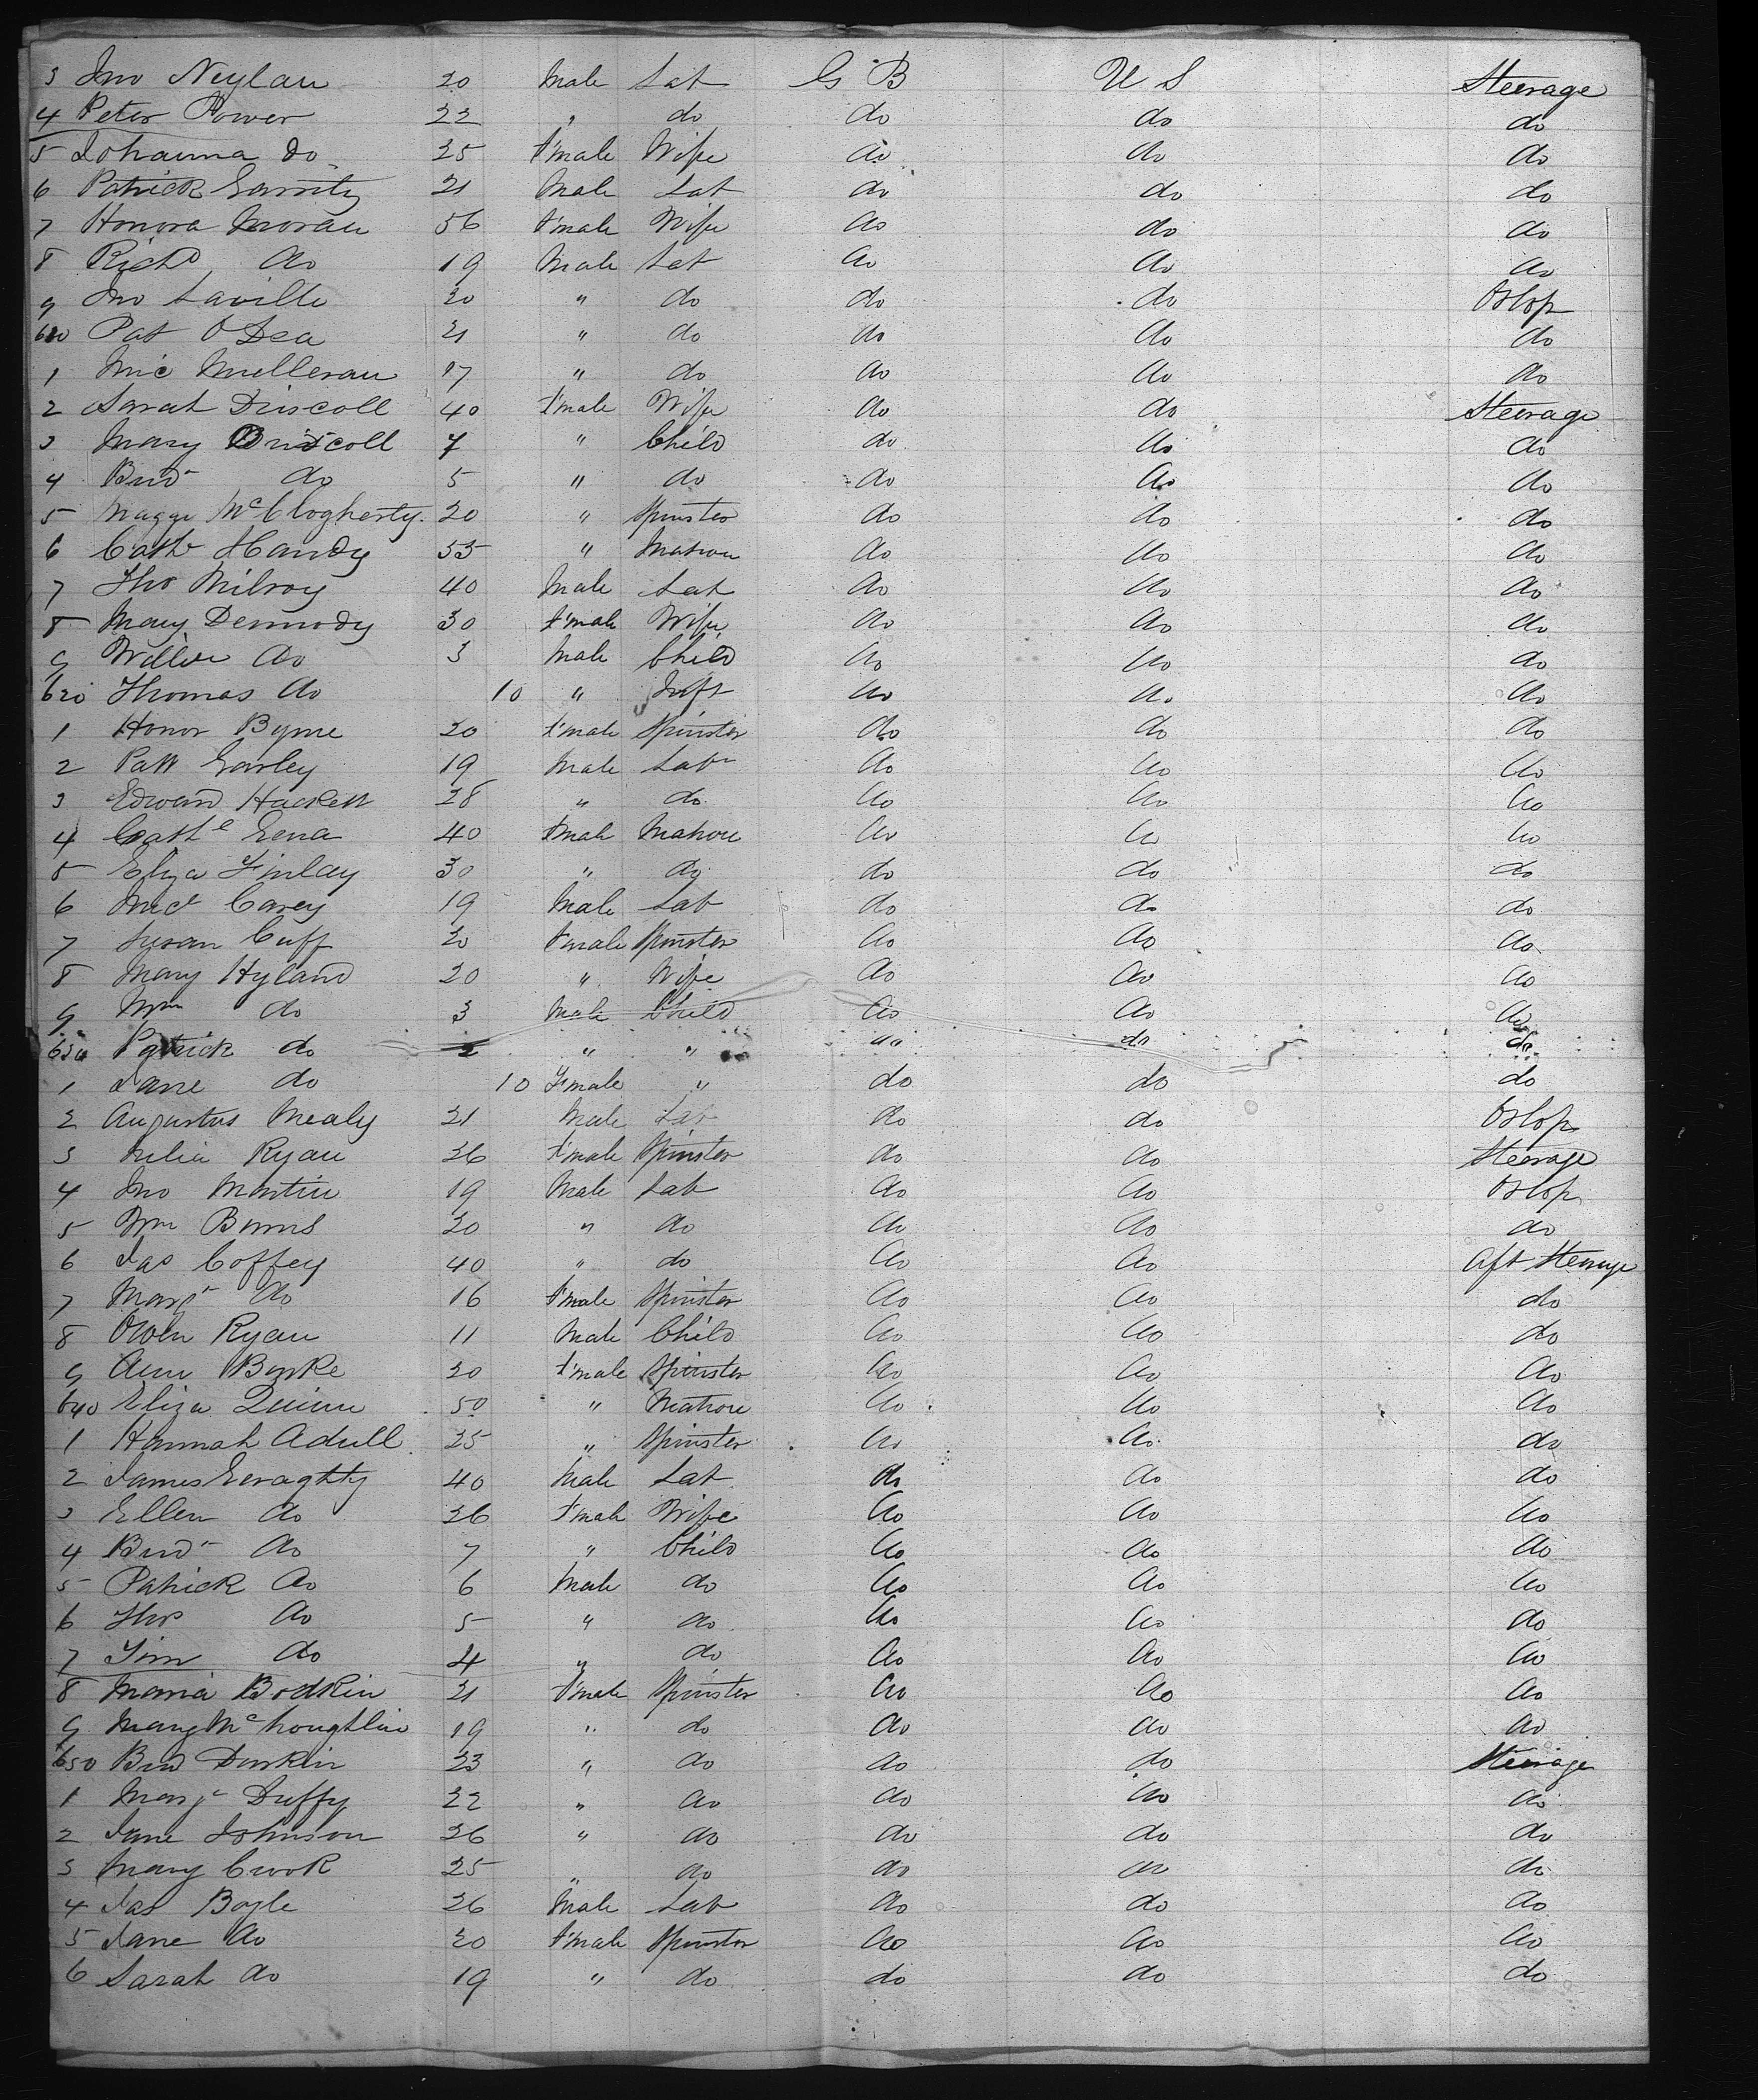 3 Jno Neylan 20 Male Lab G B U S Steerage
4 Peter Power 22 " do do do do
5 Johanna Do 25 F'male Wife do do do
6 Patrick Garrity 21 Male Lab do do do
7 Honora Moran 56 F'male Wife do do do
8 Richd do 19 Male Lab do do do
9 Jno Saville 20 " do do do Orlop
610 Pat O Dea 21 " do do do do
1 Mic Mulleran 17 " do do do do
2 Sarah Driscoll 40 F'male Wife do do Steerage
3 Mary Driscoll 7 " Child do do do
4 Brid do 5 " do do do do
5 Maggie McClogherty 20 " Spinster do do do
6 Cathe Handy 35 " Matron do do do
7 Thos Milroy 40 Male Lab do do do
8 Mary Dermody 30 F'male Wife do do do
9 Willie do 3 Male Child do do do
620 Thomas do 10 " Inft do do do
1 Honor Byrne 20 F'male Spinster do do do
2 Patk Garley 19 Male Labr do do do
3 Edward Hackett 28 " do do do do
4 Cathe 40 F'male Matron do do do
5 Eliza Finlay 30 " do do do do
6 Micl Carey 19 Male Lab do do do
7 Susan Cuff 20 F'male Spinster do do do
8 Mary Hyland 20 " Wife do do do
9 Wm do 3 Male Child do do do
630 Patrick do 2 " " do do do
1 Jane do 10 F'male " do do do
2 Augustus Mealy 21 Male Lab do do Orlop
3 Delia Ryan 26 F'male Spinster do do Steerage
4 Jno Martin 19 Male Lab do do Orlop
5 Wm Burns 20 " do do do do
6 Jas Coffey 40 " do do do Aft Steerage
7 Margt do 16 F'male Spinster do do do
8 Owen Ryan 11 Male Child do do do
9 Ann Burke 20 F'male Spinster do do do
640 Eliza Quinn 50 " Matron do do do
1 Hannah Adull 25 " Spinster do do do
2 James Geraghty 40 Male Lab do do do
3 Ellen do 26 F'male Wife do do do
4 Brid do 7 " Child do do do
5 Patrick do 6 Male do do do do
6 Thos do 5 " do do do do
7 Tim do 4 " do do do do
8 Maria Bodkin 21 F'male Spinster do do do
9 Mary McLoughlin 19 " do do do do
650 Brid Durkin 23 " do do do Steerage
1 Margt Duffy 22 " do do do do
2 Jane Johnson 26 " do do do do
3 Mary Crook 25 " do do do do
4 Jas Boyle 26 Male Lab do do do
5 Jane do 20 F'male Spinster do do do
6 Sarah do 19 " do do do do